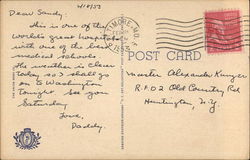 4/8/53
Dear Sandy:
This is one of the
world's great hospitals
with one of the best
medical schools.
The weather is clear
today so I shall go
on to Washington
tonight. See you
Saturday
Love,
Daddy.
TIMORE, MD.
POST CARD
Master Alexander
R.F.D 2 Old Country Rd
Huntington, N.Y